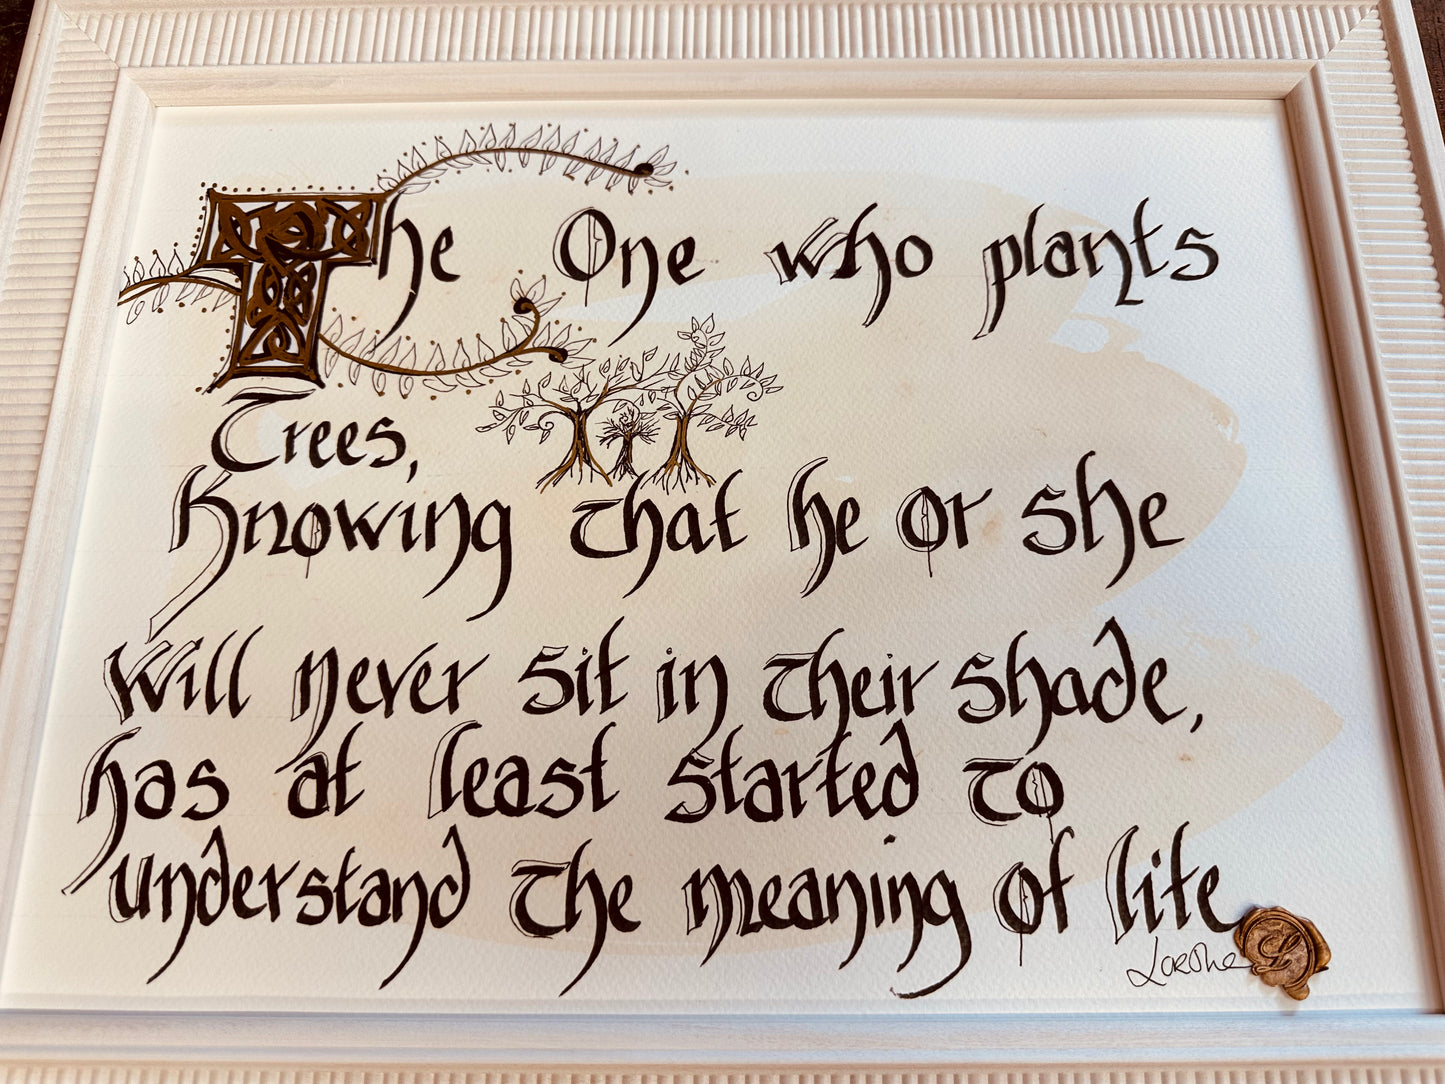 The One who plants
Trees,
Knowing that he or she
will never sit in their shade,
has at least started to
understand the meaning of life
L